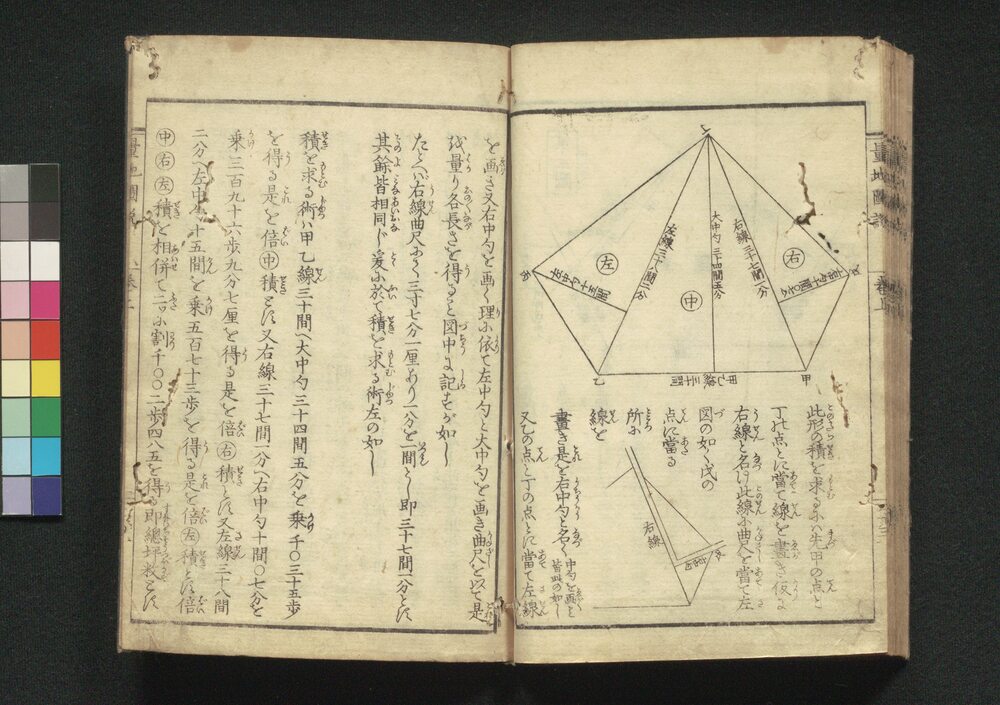 量地圖説
丁
戊
丙
乙
甲
左
中
右
左線三十八間二分
大中勺三十四間五分
右線三十七間一分
左中勺十五間
右中勺十間〇七分
甲乙線三十間
此形の積を求るにハ先甲の点と
丁の点とに當て線を畫き仮に
右線と名け此線に曲尺を當て左
図の如く戊の
点に當る
所に
線を
畫き是を右中勺と名く
中勺を画こと
皆此の如し
又乙の点と丁の点とに當て左線
右線
を画き又右中勺を画く理に依て左中勺と大中勺を画き曲尺を以て是
を量り各長さを得ると図中に記すが如し
たとヘバ右線曲尺にて三寸七分一厘あり一分を一間とし即三十七間一分とす
其餘皆相同じ爰に於て積を求る術左の如し
積を求る術ハ甲乙線三十間ヘ大中勺三十四間五分を乗千〇三十五歩
を得る是を倍中積とす又右線三十七間一分ヘ右中勺十間〇七分を
乗三百九十六歩九分七厘を得る是を倍右積とす又左線三十八間
二分ヘ左中勺十五間を乗五百七十三歩を得る是を倍左積とす倍
中右左積を相併て二に割千〇〇二歩四八五を得る即總坪数とす